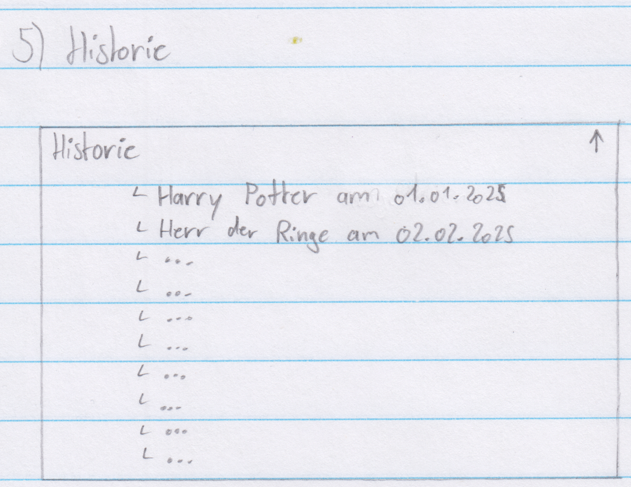 5) Historie
Historie ↑
└ Harry Potter am 01.01.2025
└ Herr der Ringe am 02.02.2025
└ ...
└ ...
└ ...
└ ...
└ ...
└ ...
└ ...
└ ...